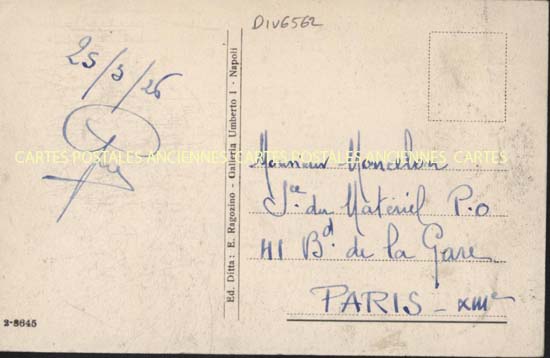 DIV6562
25/3/26
Ed. Ditta: E. Ragozino - Galleria Umberto I - Napoli
CARTES POSTALES ANCIENNES CARTES POSTALES ANCIENNES CARTES
Monsieur
Sce du Matériel P.O
41 Bd de la Gare
PARIS - XIIIe
2-8645